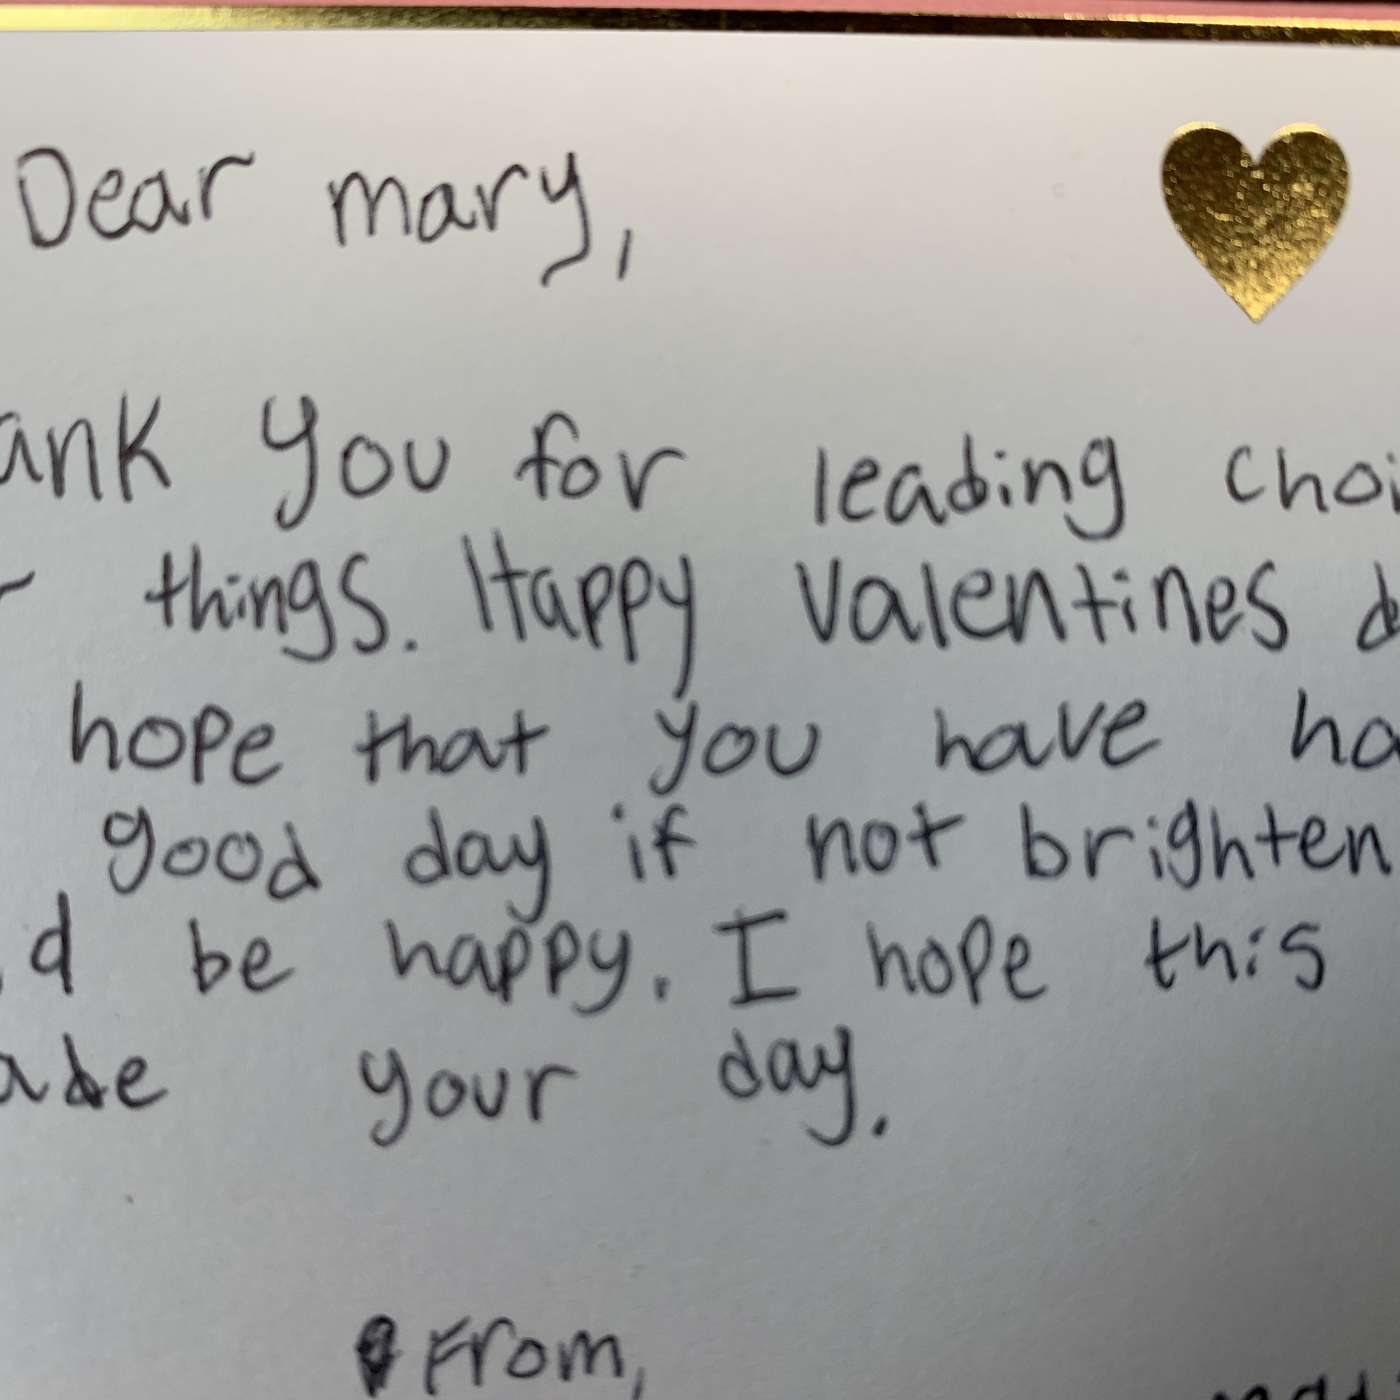 Dear mary,
ank you for leading choi
things. Happy Valentines d
hope that you have ha
good day if not brighten
d be happy. I hope this
ade your day.
From,